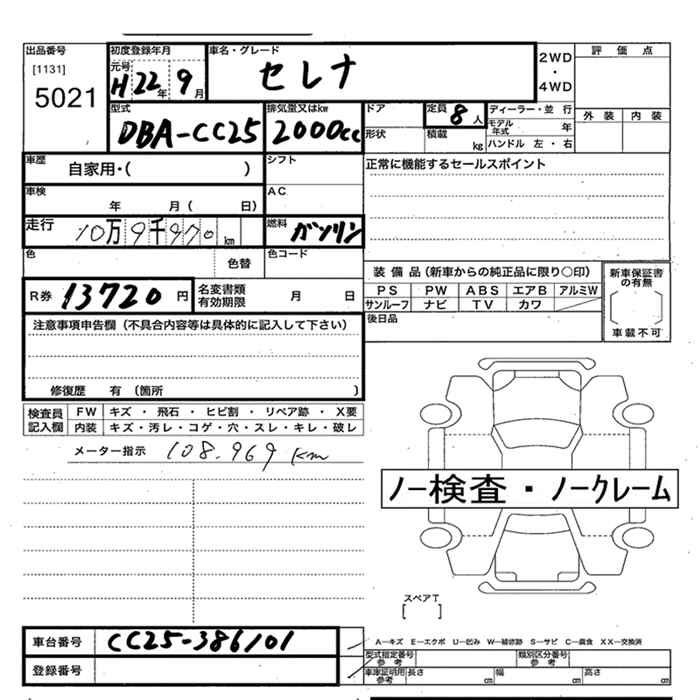 出品番号 初度登録年月 車名・グレード 2WD・4WD 評価点
[1131] 元号 H22年 9月 セレナ
5021 外装 内装
型式 排気量又はkw ドア 定員 ディーラー・並行
DBA-CC25 2000cc 8人 モデル年式 年
形状 積載 kg ハンドル 左・右
車歴 自家用・( ) シフト 正常に機能するセールスポイント
車検 年 月( 日) AC
走行 10万9千970km 燃料 ガソリン
色 色替 色コード 装備品(新車からの純正品に限り○印) 新車保証書の有無
R券 13720円 名変書類有効期限 月 日 PS PW ABS エアB アルミW
サンルーフ ナビ TV カワ
注意事項申告欄(不具合内容等は具体的に記入して下さい) 後日品 車載不可
修復歴 有(箇所 )
検査員記入欄 FW キズ・飛石・ヒビ割・リペア跡・X要
内装 キズ・汚レ・コゲ・穴・スレ・キレ・破レ
メーター指示 108.969km
ノー検査・ノークレーム
スペアT
[ ]
車台番号 CC25-386101 A−キズ E−エクボ U−凹み W−補修跡 S−サビ C−腐食 XX−交換済
登録番号 型式指定番号参考 類別区分番号参考
車庫証明用参考 長さ cm 幅 cm 高さ cm